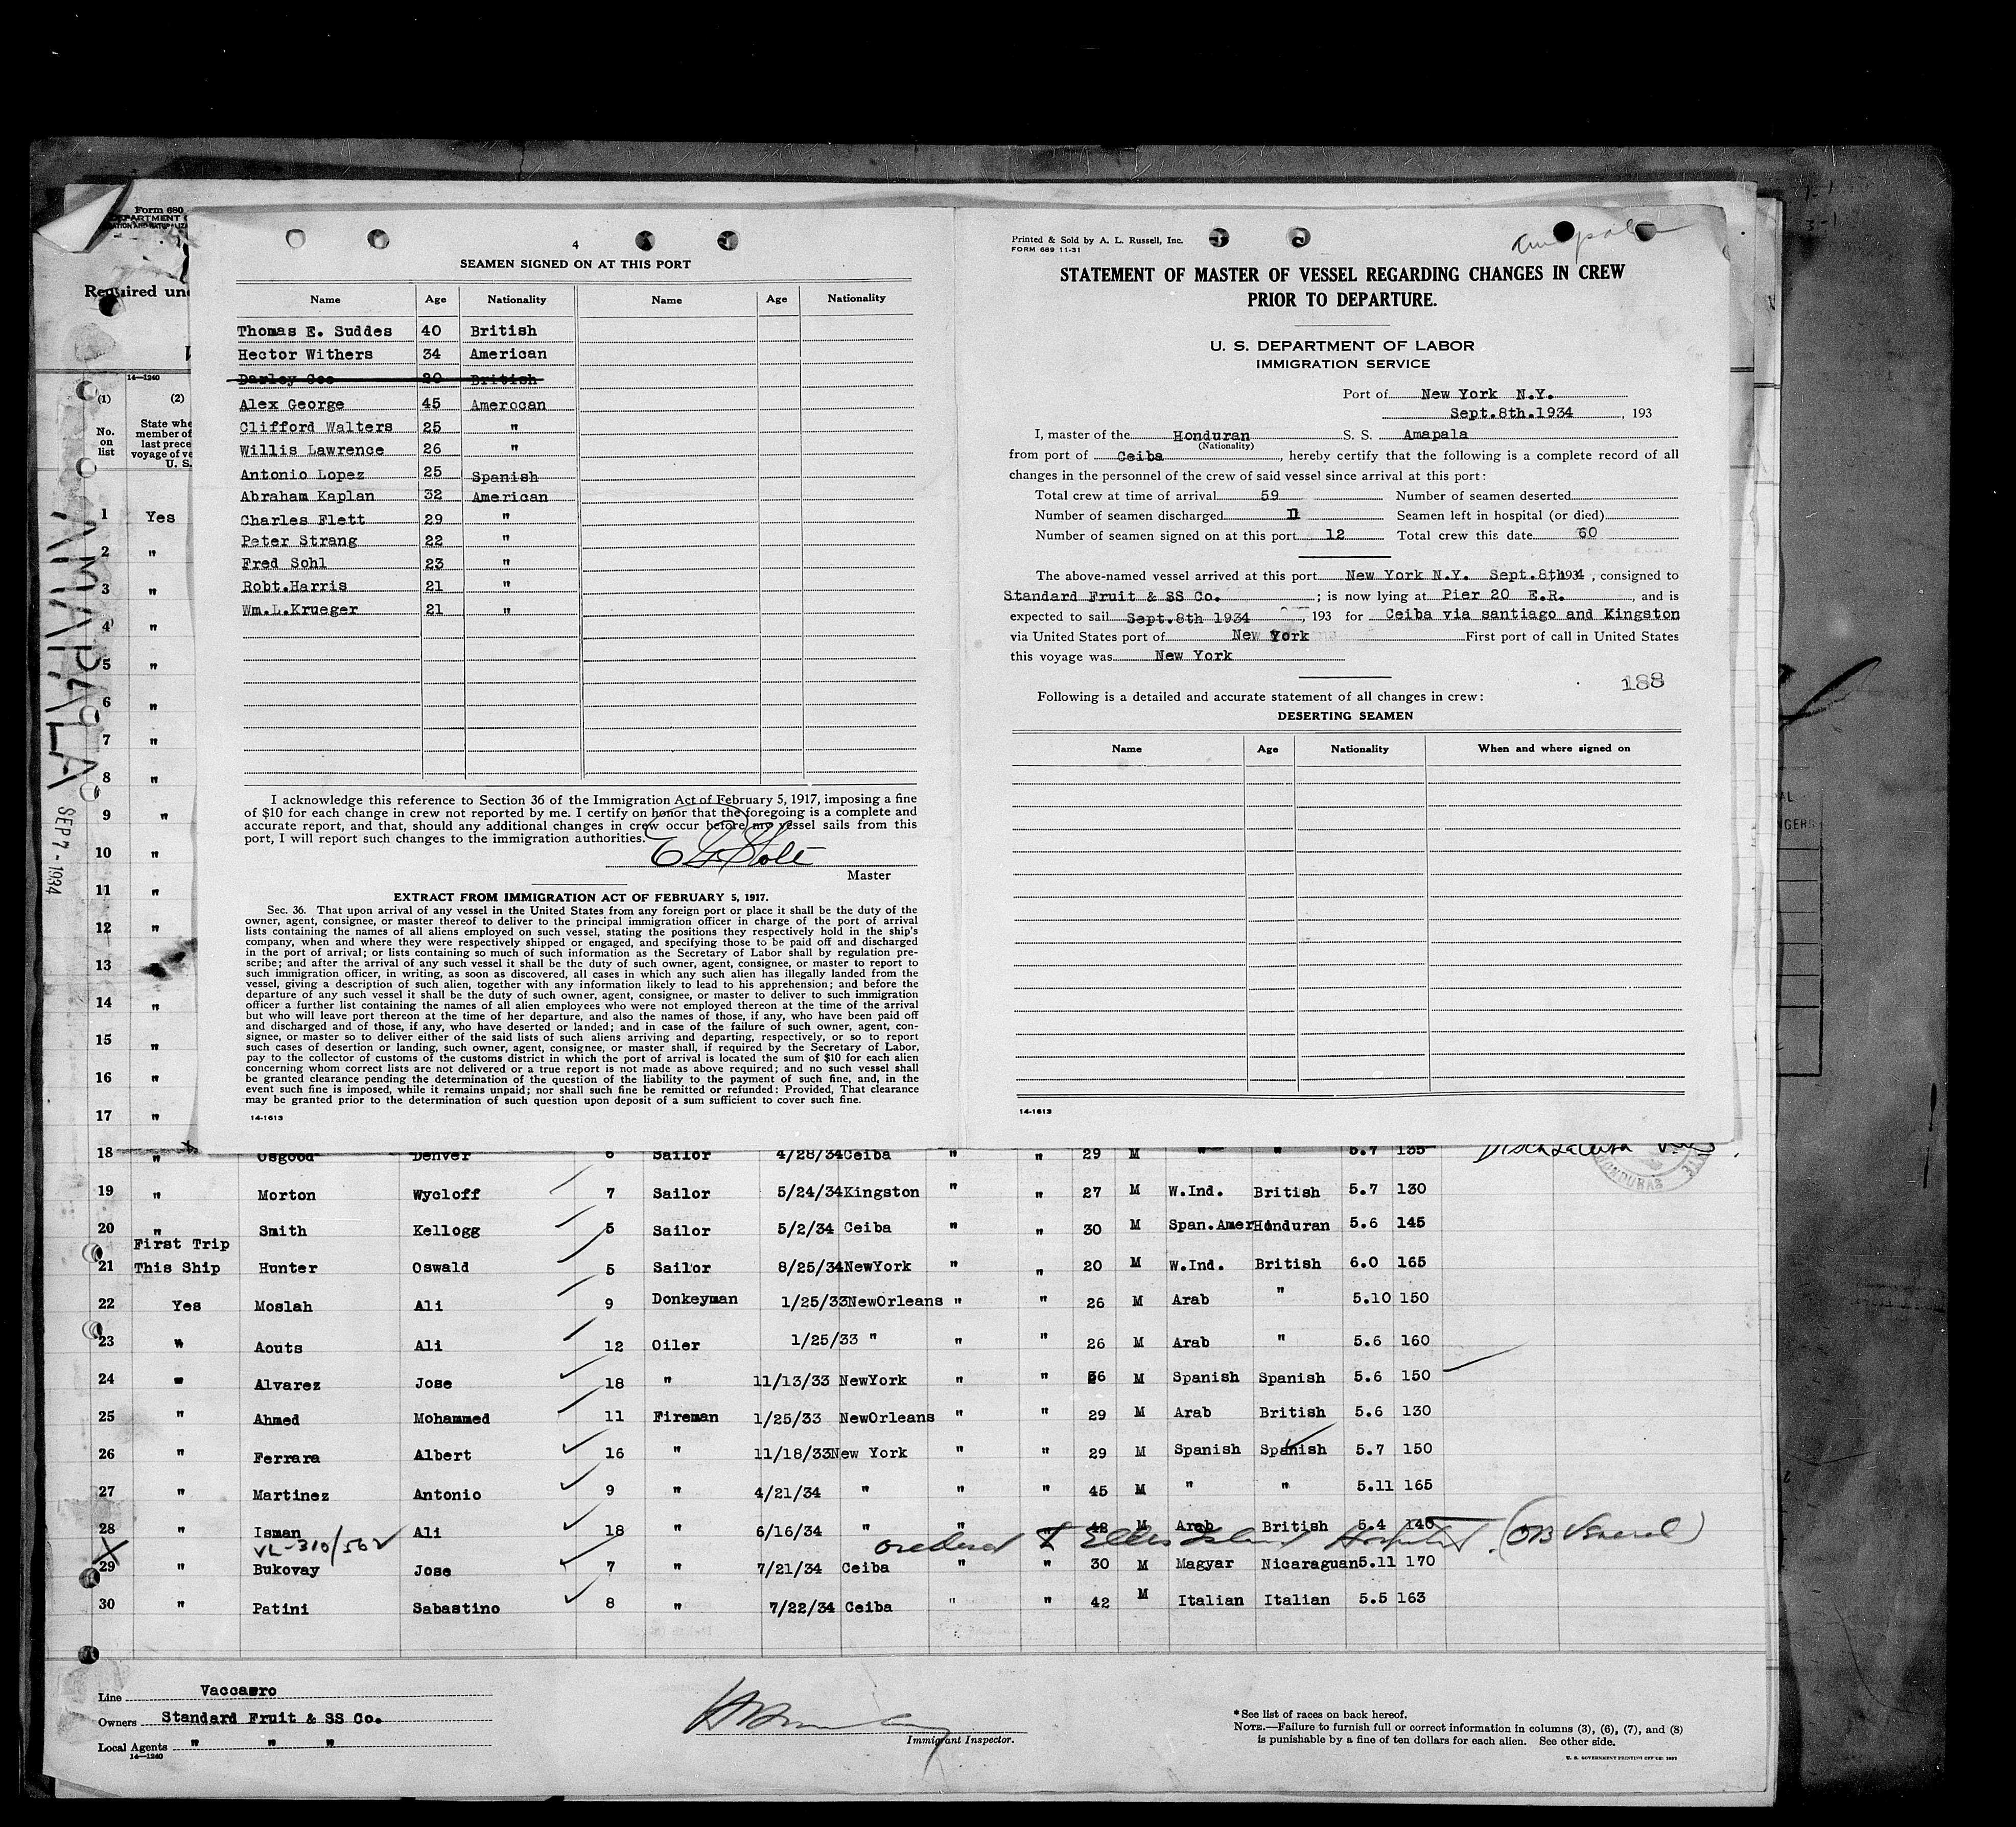 Form 680
Required und
14—1240
(1)
(2)
No. on list
State whe
member of
last prece
voyage of ve
U. S.
AMAPALA
SEP 7 - 1934
1 Yes
2 "
3 "
4 "
5 "
6 "
7 "
8 "
9 "
10 "
11 "
12 "
13
14 "
15 "
16 "
17 "
4
SEAMEN SIGNED ON AT THIS PORT
Name Age Nationality Name Age Nationality
Thomas E. Suddes 40 British
Hector Withers 34 American
Darley Coe 20 British
Alex George 45 Amerocan
Clifford Walters 25 "
Willis Lawrence 26 "
Antonio Lopez 25 Spanish
Abraham Kaplan 32 American
Charles Flett 29 "
Peter Strang 22 "
Fred Sohl 23 "
Robt.Harris 21 "
Wm.L.Krueger 21 "
I acknowledge this reference to Section 36 of the Immigration Act of February 5, 1917, imposing a fine
of $10 for each change in crew not reported by me. I certify on honor that the foregoing is a complete and
accurate report, and that, should any additional changes in crew occur before my vessel sails from this
port, I will report such changes to the immigration authorities.
Master
EXTRACT FROM IMMIGRATION ACT OF FEBRUARY 5, 1917.
Sec. 36. That upon arrival of any vessel in the United States from any foreign port or place it shall be the duty of the
owner, agent, consignee, or master thereof to deliver to the principal immigration officer in charge of the port of arrival
lists containing the names of all aliens employed on such vessel, stating the positions they respectively hold in the ship's
company, when and where they were respectively shipped or engaged, and specifying those to be paid off and discharged
in the port of arrival; or lists containing so much of such information as the Secretary of Labor shall by regulation pre-
scribe; and after the arrival of any such vessel it shall be the duty of such owner, agent, consignee, or master to report to
such immigration officer, in writing, as soon as discovered, all cases in which any such alien has illegally landed from the
vessel, giving a description of such alien, together with any information likely to lead to his apprehension; and before the
departure of any such vessel it shall be the duty of such owner, agent, consignee, or master to deliver to such immigration
officer a further list containing the names of all alien employees who were not employed thereon at the time of the arrival
but who will leave port thereon at the time of her departure, and also the names of those, if any, who have been paid off
and discharged and of those, if any, who have deserted or landed; and in case of the failure of such owner, agent, con-
signee, or master so to deliver either of the said lists of such aliens arriving and departing, respectively, or so to report
such cases of desertion or landing, such owner, agent, consignee, or master shall, if required by the Secretary of Labor,
pay to the collector of customs of the customs district in which the port of arrival is located the sum of $10 for each alien
concerning whom correct lists are not delivered or a true report is not made as above required; and no such vessel shall
be granted clearance pending the determination of the question of the liability to the payment of such fine, and, in the
event such fine is imposed, while it remains unpaid; nor shall such fine be remitted or refunded: Provided, That clearance
may be granted prior to the determination of such question upon deposit of a sum sufficient to cover such fine.
14-1613
Printed & Sold by A. L. Russell, Inc.
FORM 689 11-31
Amapala
STATEMENT OF MASTER OF VESSEL REGARDING CHANGES IN CREW
PRIOR TO DEPARTURE.
U. S. DEPARTMENT OF LABOR
IMMIGRATION SERVICE
Port of New York N.Y.
Sept.8th.1934 , 193
I, master of the Honduran S. S. Amapala
(Nationality)
from port of Ceiba , hereby certify that the following is a complete record of all
changes in the personnel of the crew of said vessel since arrival at this port:
Total crew at time of arrival 59 Number of seamen deserted
Number of seamen discharged 11 Seamen left in hospital (or died)
Number of seamen signed on at this port 12 Total crew this date 60
The above-named vessel arrived at this port New York N.Y. Sept.8th1934 , consigned to
Standard Fruit & SS Co. ; is now lying at Pier 20 E.R. , and is
expected to sail Sept.8th 1934 , 193 for Ceiba via santiago and Kingston
via United States port of New York First port of call in United States
this voyage was New York
188
Following is a detailed and accurate statement of all changes in crew:
DESERTING SEAMEN
Name Age Nationality When and where signed on
14-1613
18 " Osgood Denver 6 Sailor 4/28/34 Ceiba " " 29 M " " 5.7 135
HONDURAS
19 " Morton Wycloff 7 Sailor 5/24/34 Kingston " " 27 M W.Ind. British 5.7 130
20 " Smith Kellogg 5 Sailor 5/2/34 Ceiba " " 30 M Span.Amer Honduran 5.6 145
First Trip
21 This Ship Hunter Oswald 5 Sailor 8/25/34 NewYork " " 20 M W.Ind. British 6.0 165
22 Yes Moslah Ali 9 Donkeyman 1/25/33 NewOrleans " " 26 M Arab " 5.10 150
23 " Aouts Ali 12 Oiler 1/25/33 " " " 26 M Arab " 5.6 160
24 " Alvarez Jose 18 " 11/13/33 NewYork " " 36 M Spanish Spanish 5.6 150
25 " Ahmed Mohammed 11 Fireman 1/25/33 NewOrleans " " 29 M Arab British 5.6 130
26 " Ferrara Albert 16 " 11/18/33 New York " " 29 M Spanish Spanish 5.7 150
27 " Martinez Antonio 9 " 4/21/34 " " " 45 M " " 5.11 165
28 " Isman Ali 18 " 6/16/34 " " " 48 M Arab British 5.4 140
VL-310/562 ordered to Ellis Island Hospital. (OB Venereal)
29 " Bukovay Jose 7 " 7/21/34 Ceiba " " 30 M Magyar Nicaraguan 5.11 170
30 " Patini Sabastino 8 " 7/22/34 Ceiba " " 42 M Italian Italian 5.5 163
Line Vaccaro
Owners Standard Fruit & SS Co.
Local Agents " " "
14—1240
Immigrant Inspector.
*See list of races on back hereof.
NOTE.—Failure to furnish full or correct information in columns (3), (6), (7), and (8)
is punishable by a fine of ten dollars for each alien. See other side.
U. S. GOVERNMENT PRINTING OFFICE: 1931